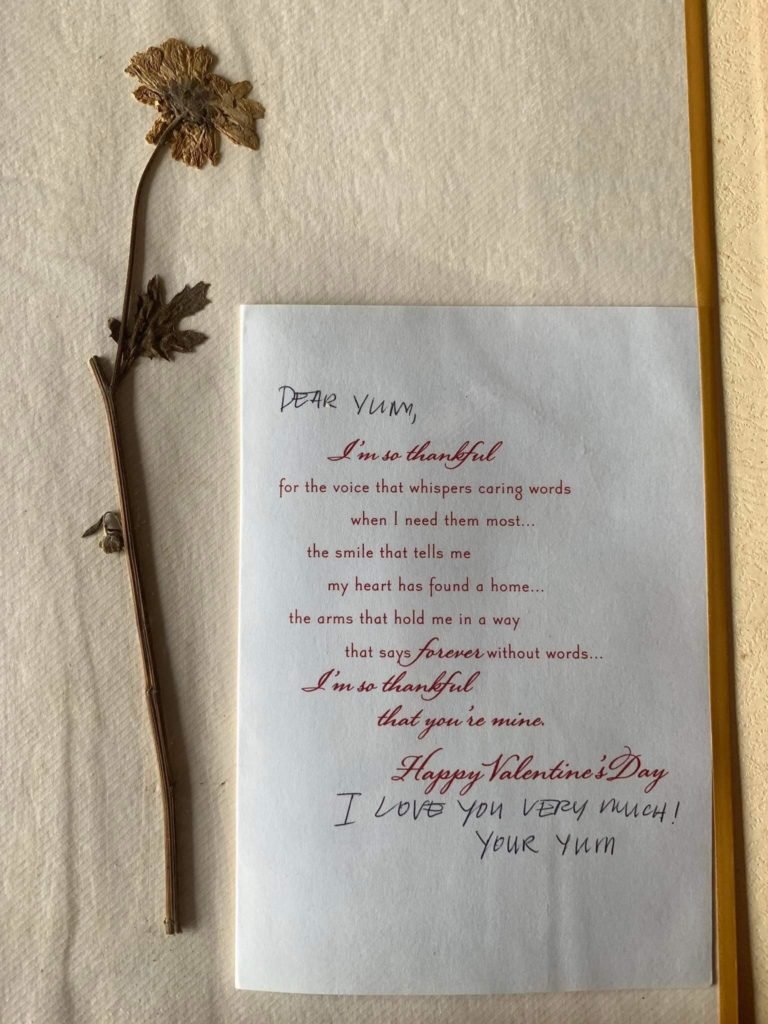 DEAR YUM,
I'm so thankful
for the voice that whispers caring words
when I need them most...
the smile that tells me
my heart has found a home...
the arms that hold me in a way
that says forever without words...
I'm so thankful
that you're mine.
Happy Valentine's Day
I LOVE YOU VERY MUCH!
YOUR YUM